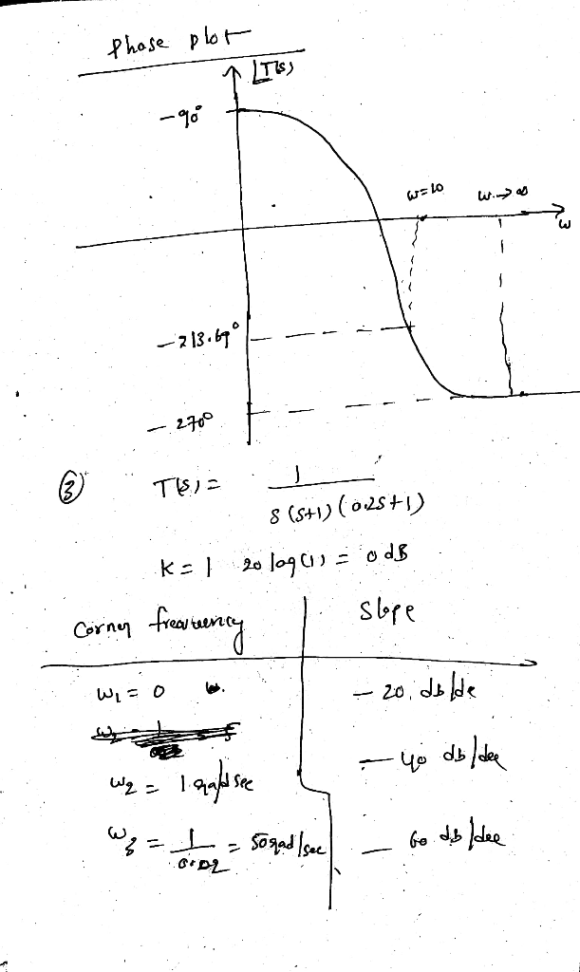 Phase plot
∠T(s)
-90°
ω=10
ω→∞
ω
-213.69°
-270°
③ T(s) = 1 / s(s+1)(0.2s+1)
K = 1 20 log(1) = 0 dB
Corner frequency Slope
ω₁ = 0 - 20 db/de
ω₂ = 1 rad/sec - 40 db/dec
ω₃ = 1/0.02 = 50 rad/sec - 60 db/dec